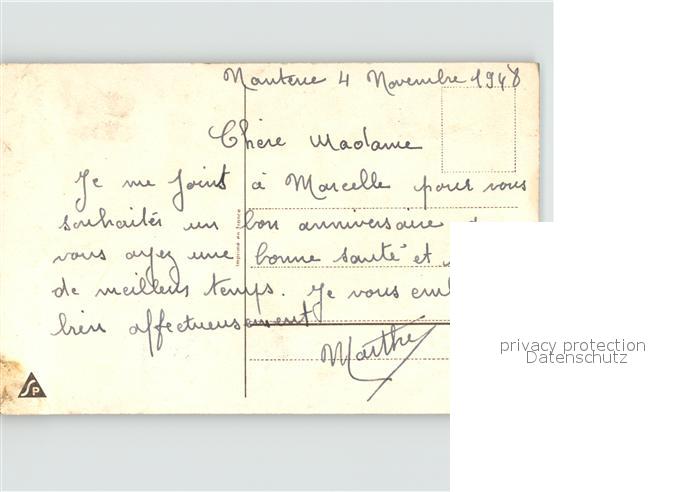 Nanterre 4 Novembre 1948
Chère Madame
Je me joint à Marcelle pour vous
souhaiter un bon anniversaire
vous ayez une bonne santé et
de meilleus temps. Je vous emb
bien affectueusement
Marthe
Imprimé en France
SP
privacy protection
Datenschutz